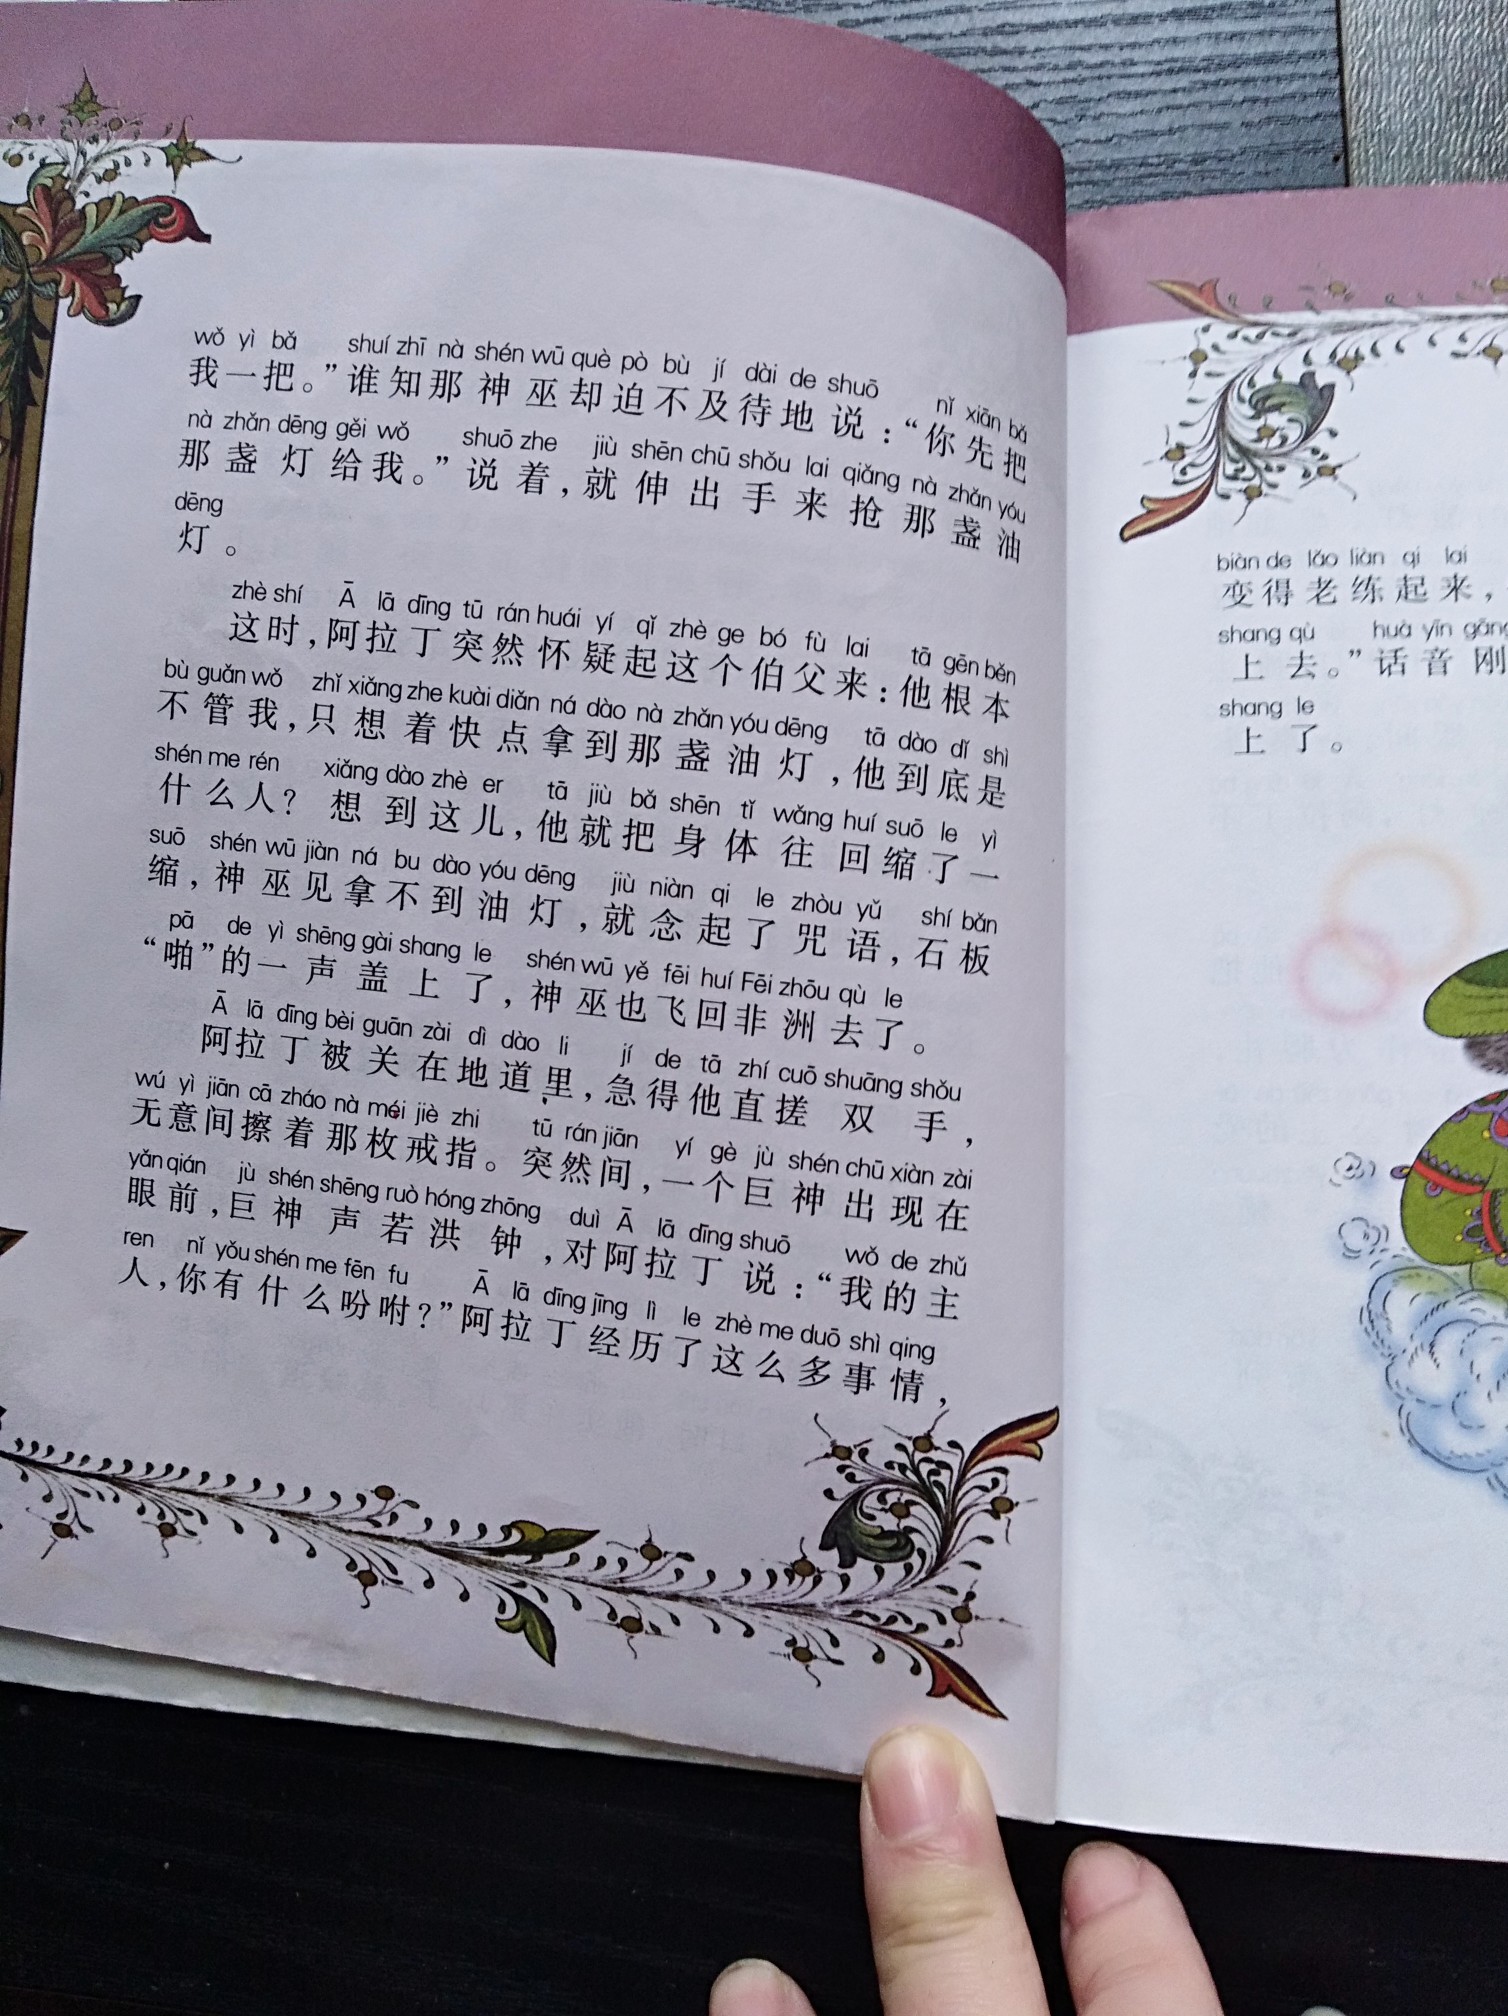 wǒ yì bǎ shuí zhī nà shén wū què pò bù jí dài de shuō nǐ xiān bǎ
我一把。”谁知那神巫却迫不及待地说：“你先把
nà zhǎn dēng gěi wǒ shuō zhe jiù shēn chū shǒu lai qiǎng nà zhǎn yóu
那盏灯给我。”说着，就伸出手来抢那盏油
dēng
灯。
zhè shí Ā lā dīng tū rán huái yí qǐ zhè ge bó fù lai tā gēn běn
这时，阿拉丁突然怀疑起这个伯父来：他根本
bù guǎn wǒ zhǐ xiǎng zhe kuài diǎn ná dào nà zhǎn yóu dēng tā dào dǐ shì
不管我，只想着快点拿到那盏油灯，他到底是
shén me rén xiǎng dào zhè er tā jiù bǎ shēn tǐ wǎng huí suō le yì
什么人？想到这儿，他就把身体往回缩了一
suō shén wū jiàn ná bu dào yóu dēng jiù niàn qi le zhòu yǔ shí bǎn
缩，神巫见拿不到油灯，就念起了咒语，石板
pā de yì shēng gài shang le shén wū yě fēi huí Fēi zhōu qù le
“啪”的一声盖上了，神巫也飞回非洲去了。
Ā lā dīng bèi guān zài dì dào li jí de tā zhí cuō shuāng shǒu
阿拉丁被关在地道里，急得他直搓双手，
wú yì jiān cā zháo nà méi jiè zhi tū rán jiān yí gè jù shén chū xiàn zài
无意间擦着那枚戒指。突然间，一个巨神出现在
yǎn qián jù shén shēng ruò hóng zhōng duì Ā lā dīng shuō wǒ de zhǔ
眼前，巨神声若洪钟，对阿拉丁说：“我的主
ren nǐ yǒu shén me fēn fu Ā lā dīng jīng lì le zhè me duō shì qing
人，你有什么吩咐？”阿拉丁经历了这么多事情，
biàn de lǎo liàn qi lai
变得老练起来，
shang qù huà yīn gāng
上去。”话音刚
shang le
上了。